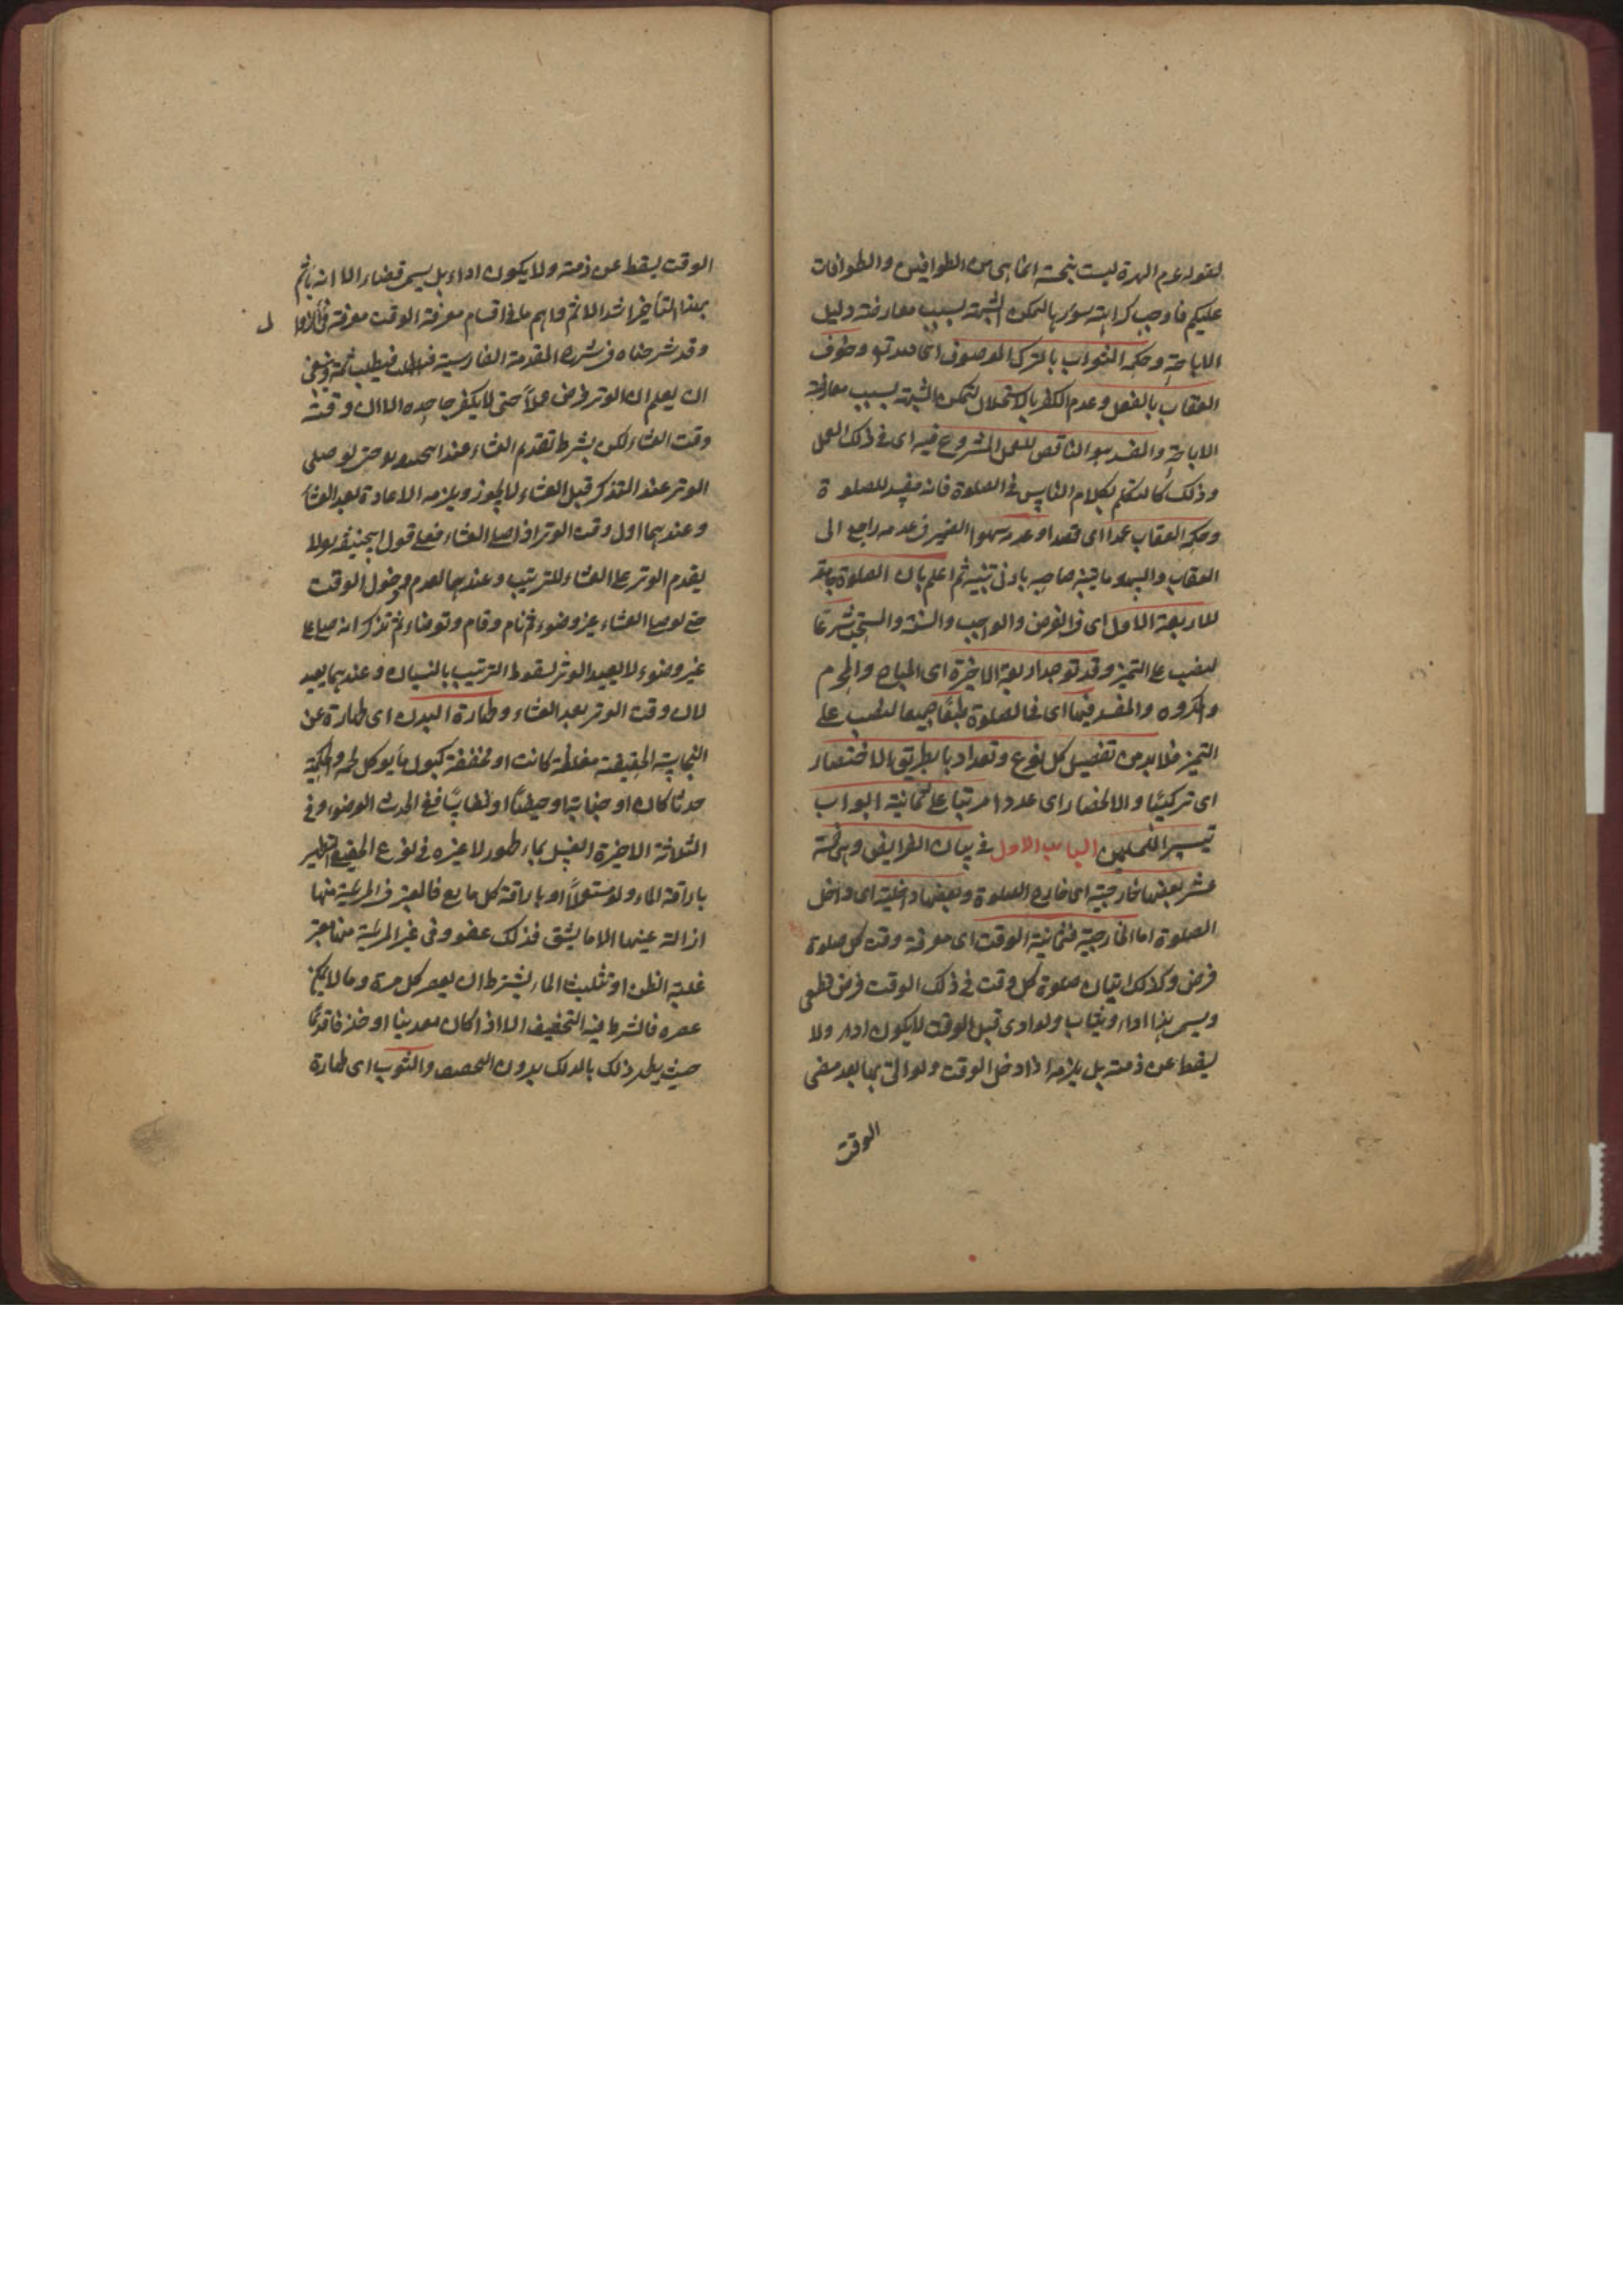 لقوله عم الهرة ليست بنجسة انما هى من الطوافين والطوافات
عليكم فاوجب كراهته سورها لتمكن الشبهة بسبب معارضة دليل
الاباحة وحكمه الثواب بالترك الموصوف اى لله تع وخوف
العقاب بالفعل وعدم الكفر بالاستحلال لتمكن الشبهة بسبب معارضة
الاباحة والمفسد هو الناقض للعمل المشروع فيه اى فى ذلك العمل
وذلك كالتكلم بكلام الناس فى الصلوة فانه مفسد للصلوة
وحكمه العقاب عمدا اى قصدا وعدمه سهوا الضمير فى عدمه راجع الى
العقاب والسهو ما يتنبه صاحبه بادنى تنبيه ثم اعلم بان الصلوة جامعة
للاربعة الاول اى فى الفرض والواجب والسنة والمستحب شرعا
نصب على التميز وقد توجد اربعة الاخيرة اى المباح والمحرم
والمكروه والمفسد فيها اى فى الصلوة طبعًا جميعا نصب على
التميز فلا بد من تفصيل كل نوع وتعدادها بطريق الاختصار
اى تركيبًا والانحصار اى عددا مرتبا على ثمانية ابواب
تيسيرا للمصلين الباب الاول فى بيان الفرايض وهى خمسة
عشر بعضها خارجية اى خارج الصلوة وبعضها داخلية اى داخل
الصلوة اما الخارجية فثمانية الوقت اى معرفة وقت كل صلوة
فرض وكذلك اتيان صلوة كل وقت فى ذلك الوقت فرض قطعى
ويسمى هذا اداء ويثاب ولو ادى قبل الوقت لا يكون اداء ولا
يسقط عن ذمته بل يلزمه اذا دخل الوقت ولو اتى بها بعد مضى
الوقت
الوقت يسقط عن ذمته ولا يكون اداء بل يسمى قضاء الا انه يأثم
بهذا التأخير اشد الاثم واهم ما فى اقسام معرفة الوقت معرفة
وقد شرحناه فى شرح المقدمة الفارسية فيطلب ثمة وينبغى
ان يعلم ان الوتر فرض عملاً حتى لا يكفر جاحده الا ان وقته
وقت العشاء لكن بشرط تقديم العشاء عند ابى حنيفة حتى لو صلى
الوتر عند التذكر قبل العشاء لا يجوز ويلزمه الاعادة بعد العشاء
وعندهما اول وقت الوتر اذا صلى العشاء فعلى قول ابى حنيفة لا
يقدم الوتر على العشاء للترتيب وعندهما لعدم دخول الوقت
حتى لو صلى العشاء بغير وضوء ثم نام وقام وتوضاء ثم تذكر انه صلى على
غير وضوء لا يعيد الوتر لسقوط الترتيب بالنسيان وعندهما يعيد
لان وقت الوتر بعد العشاء وطهارة البدن اى طهارة عن
النجاسة الحقيقية مغلظة كانت او مخففة كبول ما يوكل لحمه والحكمية
حدثا كان او جنابة او حيضًا او نفاسًا ففى الحدث الوضوء وفى
الثلاثة الاخيرة الغسل بماء طهور لا غيره فى نوع الحقيقى التطهير
باراقة الماء ولو مستعملاً او باراقة كل مايع فالمعتبر فى المرئية منها
ازالة عينها الا ما يشق فذلك عفو وفى غير المرئية منها معتبر
غلبة الظن او تثليث الماء بشرط ان يعصر كل مرة وما لا يمكن
عصره فالشرط فيه التجفيف الا اذا كان معدنيا او خزفا قديمًا
حيث يطهر ذلك بالدلك بدون العصر والثوب اى طهارة